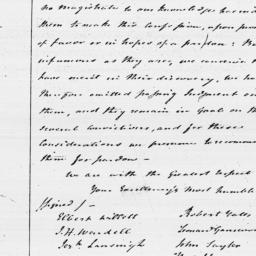 no magistrate to our knowledge has
them to make this confession, upon
of favor or in hopes of a pardon: 
infamous as they are, we conceive
have merit in their discovery, we ha
therefore omitted passing Judgment on
them, and they remain in Goal on the
several Convictions, and for these
Considerations we presume to recommend
them for pardon —
We are with the Greatest respect
Your Excellency's most humble
Signed /—
Elbert Willett
Robert Yates
J. H. Wendell
Leonard Gansevoort
Jer.h Lansingh
John Taylor